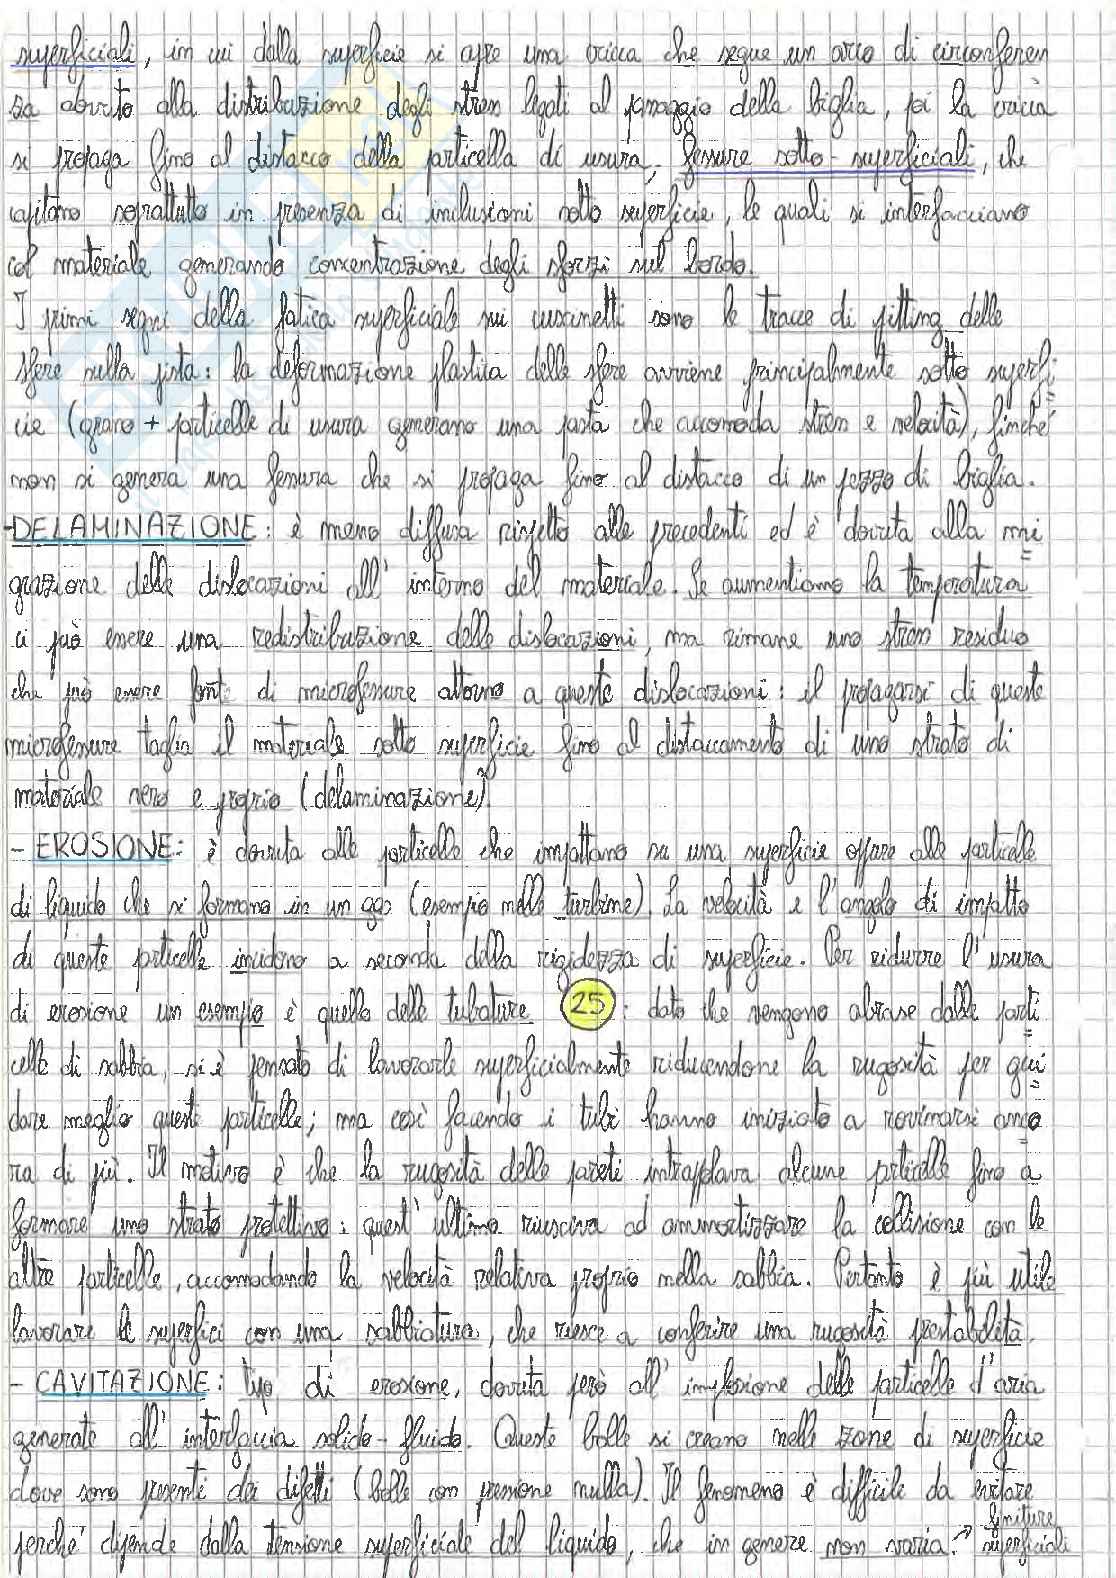 superficiali, in cui dalla superficie si apre una cricca che segue un arco di circonferen
za dovuto alla distribuzione degli stress legati al passaggio della biglia, poi la cricca
si propaga fino al distacco della particella di usura; fessure sotto-superficiali, che
capitano soprattutto in presenza di inclusioni sotto superficie, le quali si interfacciano
col materiale generando concentrazione degli sforzi sul bordo.
I primi segni della fatica superficiale sui cuscinetti sono le tracce di pitting delle
sfere sulla pista: la deformazione plastica delle sfere avviene principalmente sotto superfi=
cie (grano + particelle di usura generano una pasta che accomoda stress e velocità), finché
non si genera una fessura che si propaga fino al distacco di un pezzo di biglia.
-DELAMINAZIONE: è meno diffusa rispetto alle precedenti ed è dovuta alla mi=
grazione delle dislocazioni all'interno del materiale. Se aumentiamo la temperatura
ci può essere una redistribuzione delle dislocazioni, ma rimane uno stress residuo
che può essere fonte di microfessure attorno a queste dislocazioni: il propagarsi di queste
microfessure taglia il materiale sotto superficie fino al distaccamento di uno strato di
materiale vero e proprio (delaminazione).
- EROSIONE: è dovuta alle particelle che impattano su una superficie oppure alle particelle
di liquido che si formano in un gas (esempio nelle turbine). La velocità e l'angolo di impatto
di queste particelle incidono a seconda della rigidezza di superficie. Per ridurre l'usura
di erosione un esempio è quello delle tubature 25 : dato che vengono abrase dalle parti=
celle di sabbia, si è pensato di lavorarle superficialmente riducendone la rugosità per gui=
dare meglio queste particelle; ma così facendo i tubi hanno iniziato a rovinarsi anco=
ra di più. Il motivo è che la rugosità delle pareti intrappolava alcune particelle fino a
formare uno strato protettivo: quest'ultimo riusciva ad ammortizzare la collisione con le
altre particelle, accomodando la velocità relativa proprio nella sabbia. Pertanto è più utile
lavorare le superfici con una sabbiatura, che riesce a conferire una rugosità prestabilita.
- CAVITAZIONE: tipo di erosione, dovuta però all'implosione delle particelle d'aria
generate all'interfaccia solido-fluido. Queste bolle si creano nelle zone di superficie
dove sono presenti dei difetti (bolle con pressione nulla). Il fenomeno è difficile da evitare
perché dipende dalla tensione superficiale del liquido, che in genere non varia. → finiture
superficiali